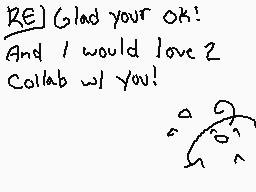 RE] Glad your ok!
And I would love 2
Collab w/ you!